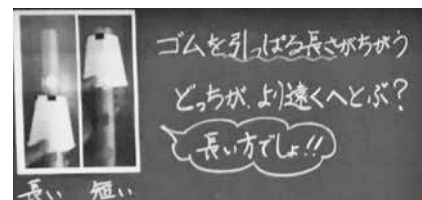 ゴムを引っぱる長さがちがう
どっちが、より遠くへとぶ?
長い方でしょ!!
長い 短い